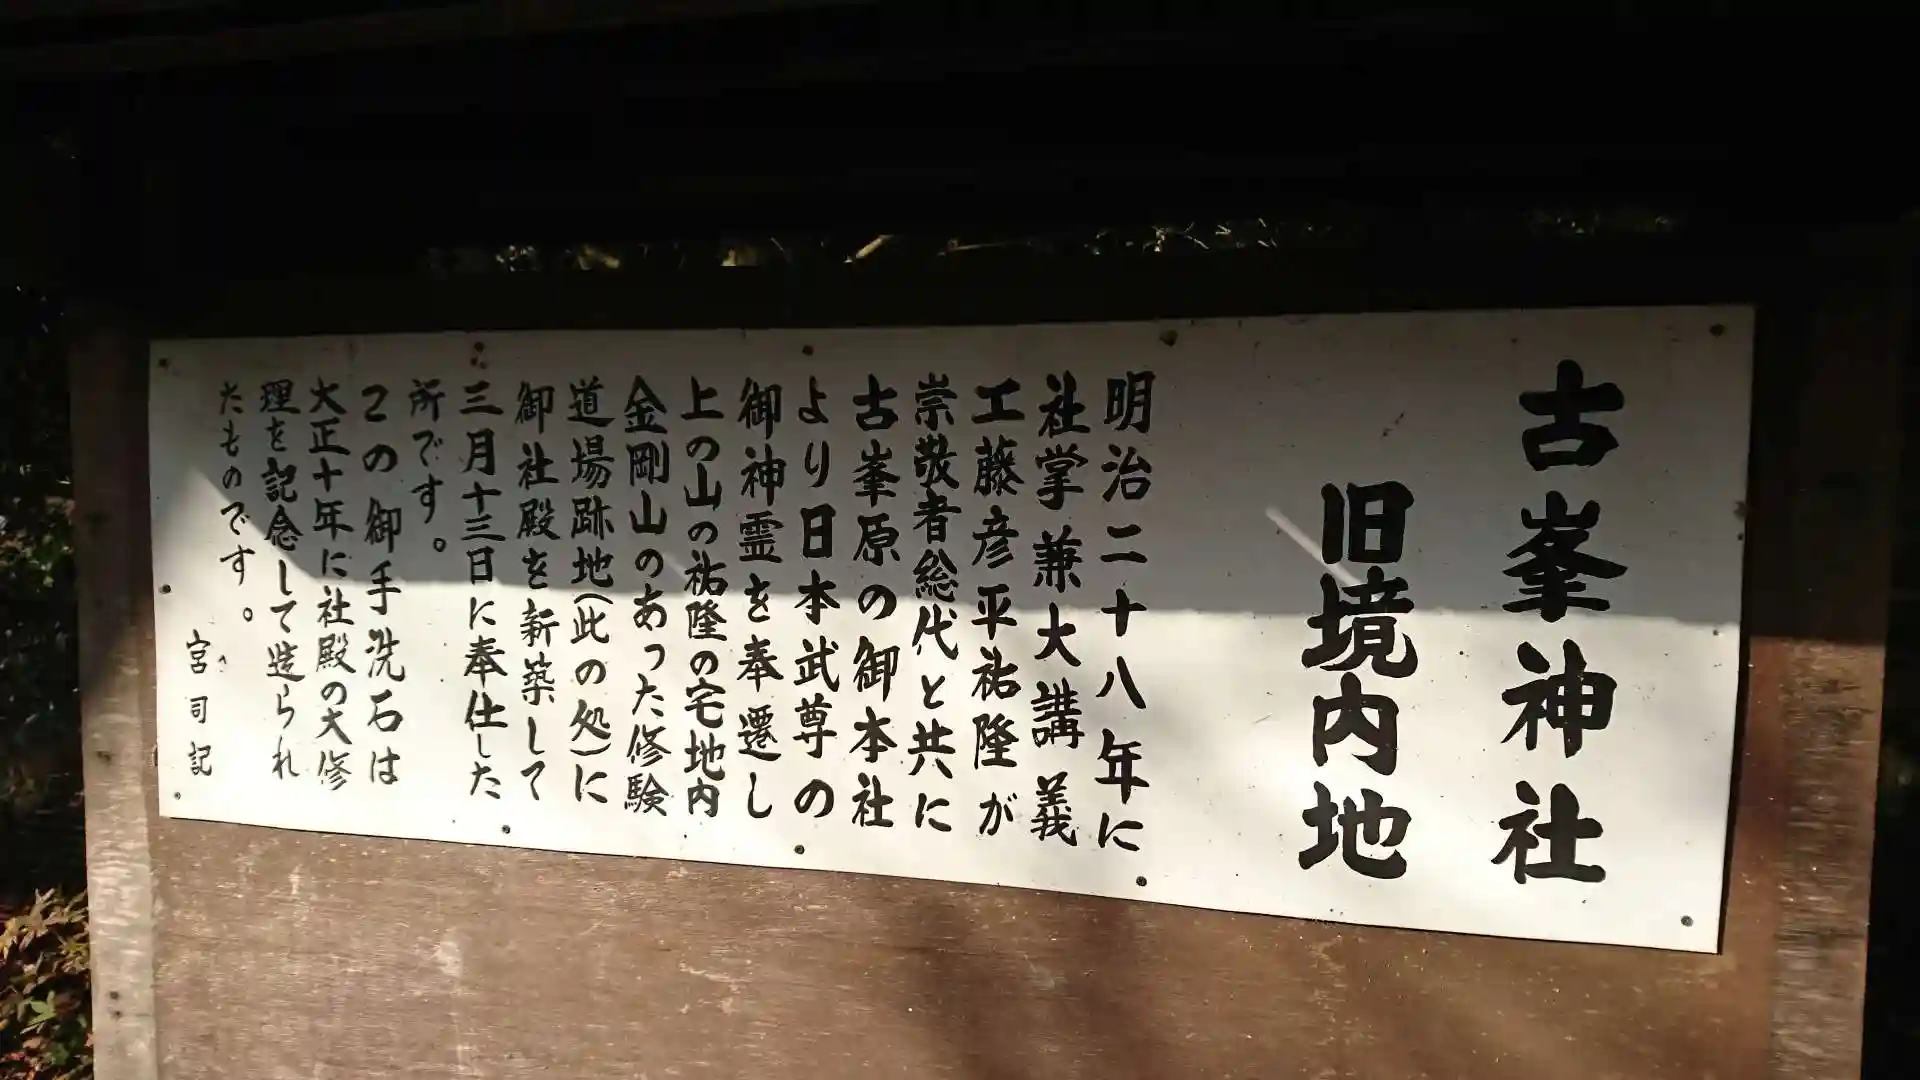 古峯神社
旧境内地
明治二十八年に
社掌兼大講義
工藤彦平祐隆が
崇敬者総代と共に
古峯原の御本社
より日本武尊の
御神霊を奉遷し
上の山の祐隆の宅地内
金剛山のあった修験
道場跡地(此の処)に
御社殿を新築して
三月十三日に奉仕した
所です。
この御手洗石は
大正十年に社殿の大修
理を記念して造られ
たものです。
宮司記